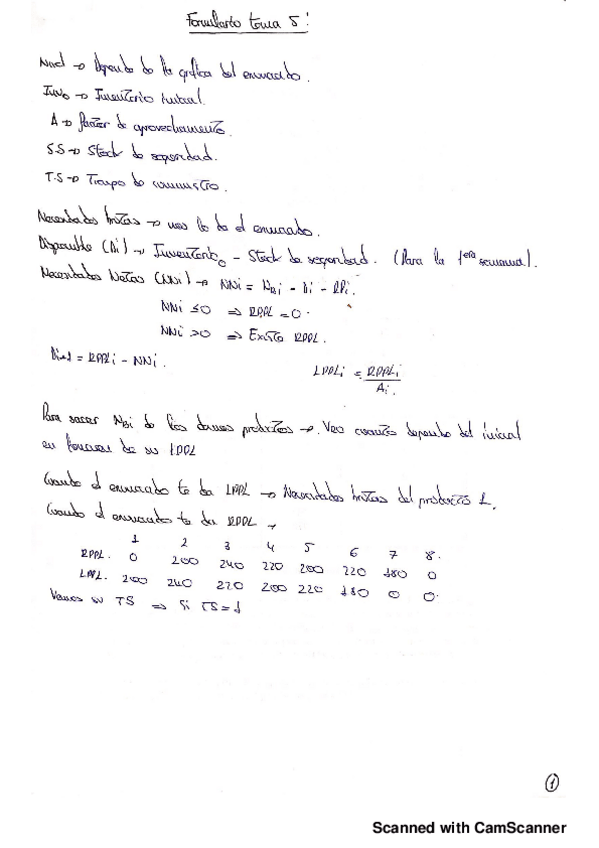 Formulario tema 5:
Nivel → Depende de la gráfica del enunciado.
INV₀ → Inventario inicial.
A → factor de aprovechamiento.
S.S → Stock de seguridad.
T.S → Tiempo de suministro.
Necesidades brutas → nos lo da el enunciado.
Disponible (Di) → Inventario₀ - Stock de seguridad. (Para la 1era semana).
Necesidades Netas (NNi) → NNi = NBi - Di - RPi.
NNi ≤0 ⇒ RPPL = 0.
NNi >0 ⇒ Existe RPPL.
Di+1 = RPPLi - NNi.
LPPLi = RPPLi / Ai.
Para sacar NBi de los demás productos → Veo cuantos depende del inicial
en función de su LPPL
Cuando el enunciado te da LPPL → Necesidades brutas del producto 1.
Cuando el enunciado te da RPPL →
1 2 3 4 5 6 7 8.
RPPL. 0 200 240 220 200 220 180 0
LPPL. 200 240 220 200 220 180 0 0
Vemos su TS ⇒ Si TS=1
1
Scanned with CamScanner